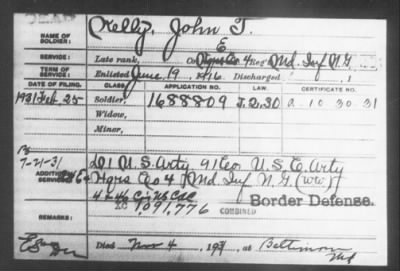 DEAD
NAME OF SOLDIER: Kelly, John T.
E
SERVICE: Late rank, Co Hqrs Co 4 Reg't Md. Inf N.G.
TERM OF SERVICE: Enlisted June 19, 1916 Discharged , 1
DATE OF FILING. CLASS. APPLICATION NO. LAW. CERTIFICATE NO.
1931 Feb 25 Soldier, 1688809 J.2.30 a 10 30 31
Widow,
Minor,
7-21-31 201 U.S. Arty 91 Co U.S.C. Arty
ADDITIONAL SERVICES: Hqrs Co 4 Md Inf N.G. (WW)
Border Defense.
XC 1091,776 COMBINED
REMARKS:
Died Nov 4, 19 at Baltimore
Md